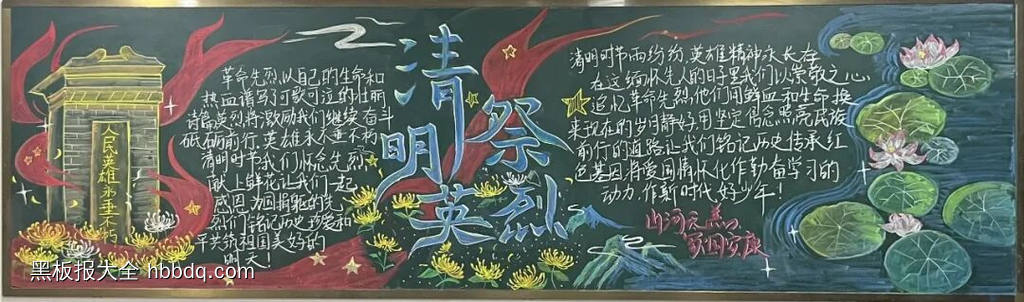 人民英雄永垂不朽
革命先烈,以自己的生命和
热血谱写了可歌可泣的壮丽
诗篇英烈将激励我们继续奋斗
砥砺前行.英雄永久垂不朽
清明时节我们怀念先烈
献上鲜花让我们一起
感恩为国捐躯的先
烈们铭记历史珍爱和
平共筑祖国美好的
明天!
清明祭英烈
清明时节雨纷纷,英雄精神永长在
在这缅怀先人的日子里我们以崇敬之心
追忆革命先烈,他们用鲜血和生命换
来现在的岁月静好.用坚定信念照亮民族
前行的道路让我们铭记历史传承红
色基因将爱国情怀化作勤奋学习的
动力.作新时代好少年!
山河无恙
家国安康
黑板报大全 hbbdq.com